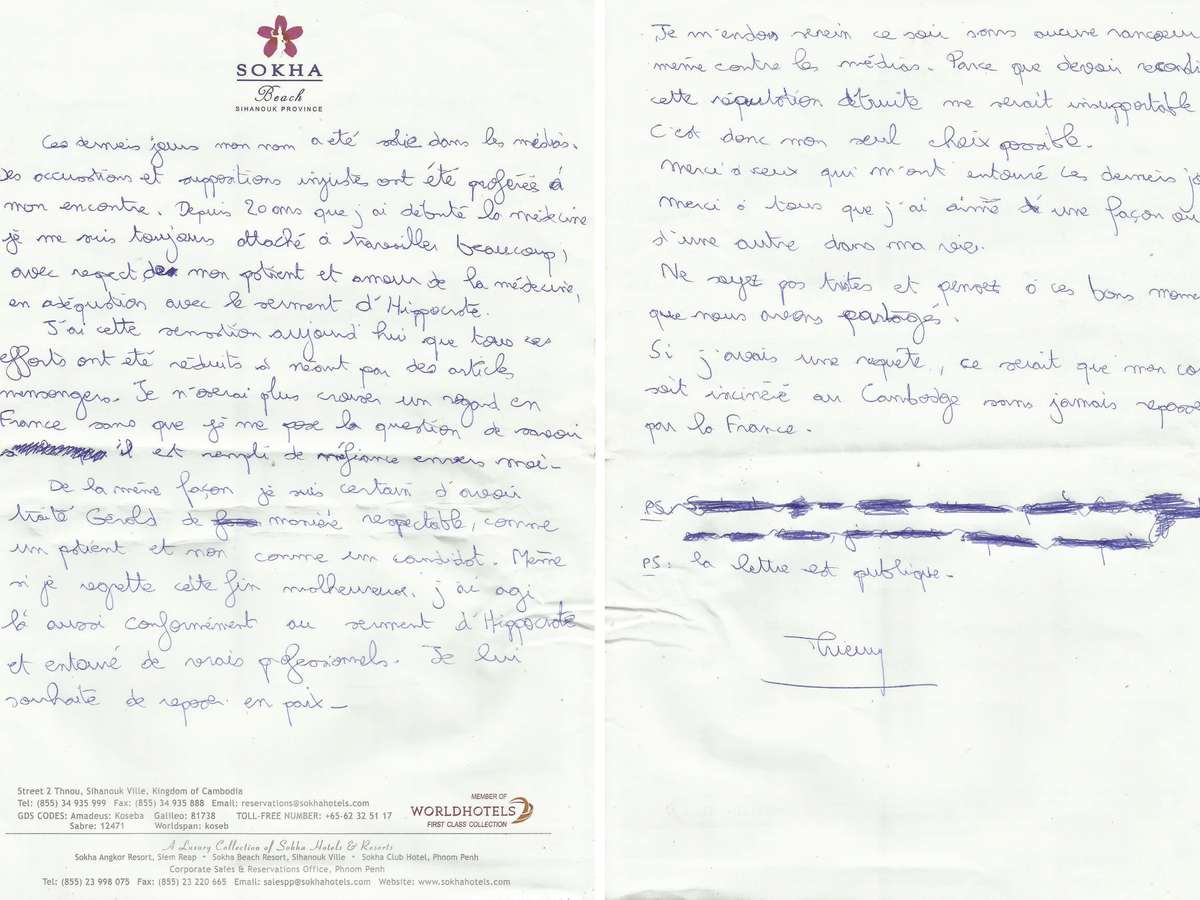 SOKHA
Beach
SIHANOUK PROVINCE
Ces derniers jours mon nom a été sali dans les médias.
Des accusations et suppositions injustes ont été proférés à
mon encontre. Depuis 20 ans que j'ai débuté la médecine
je me suis toujours attaché à travailler beaucoup,
avec respect de mon patient et amour de la médecine,
en adéquation avec le serment d'Hippocrate.
J'ai cette sensation aujourd'hui que tous ces
efforts ont été réduits à néant par des articles
mensongers. Je n'oserai plus croiser un regard en
France sans que je me pose la question de savoir
s'il est rempli de méfiance envers moi-
De la même façon je suis certain d'avoir
traité Gérald de manière respectable, comme
un patient et non comme un candidat. Même
si je regrette cette fin malheureuse, j'ai agi
là aussi conformément au serment d'Hippocrate
et entouré de vrais professionnels. Je lui
souhaite de reposer en paix-
Street 2 Thnou, Sihanouk Ville, Kingdom of Cambodia
Tel: (855) 34 935 999 Fax: (855) 34 935 888 Email: reservations@sokhahotels.com
GDS CODES: Amadeus: Koseba Galileo: 81738 TOLL-FREE NUMBER: +65-62 32 51 17
Sabre: 12471 Worldspan: koseb
MEMBER OF
WORLDHOTELS
FIRST CLASS COLLECTION
A Luxury Collection of Sokha Hotels & Resorts
Sokha Angkor Resort, Siem Reap • Sokha Beach Resort, Sihanouk Ville • Sokha Club Hotel, Phnom Penh
Corporate Sales & Reservations Office, Phnom Penh
Tel: (855) 23 998 075 Fax: (855) 23 220 665 Email: salespp@sokhahotels.com Website: www.sokhahotels.com
Je m'endors serein ce soir sans aucune rancoeur
même contre les médias. Parce que devoir reconsti
cette réputation détruite me serait insupportable
C'est donc mon seul choix possible.
Merci à ceux qui m'ont entouré ces derniers jo
Merci à tous que j'ai aimé d'une façon ou
d'une autre dans ma vie.
Ne soyez pas tristes et pensez à ces bons mome
que nous avons partagés.
Si j'avais une requête, ce serait que mon co
soit incinéré au Cambodge sans jamais repasse
par la France.
PS:
PS: la lettre est publique-
Thierry